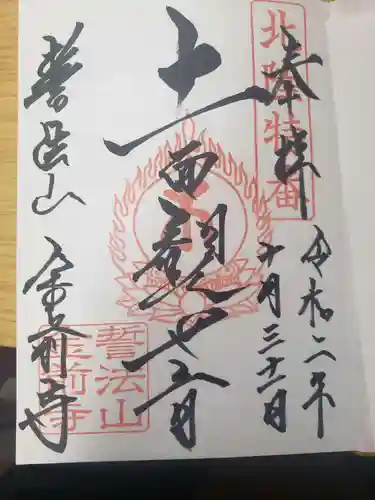 北陸特番
奉拝
令和二年
十月三十一日
十一面観世音
誓法山
金前寺
誓法山
金前寺